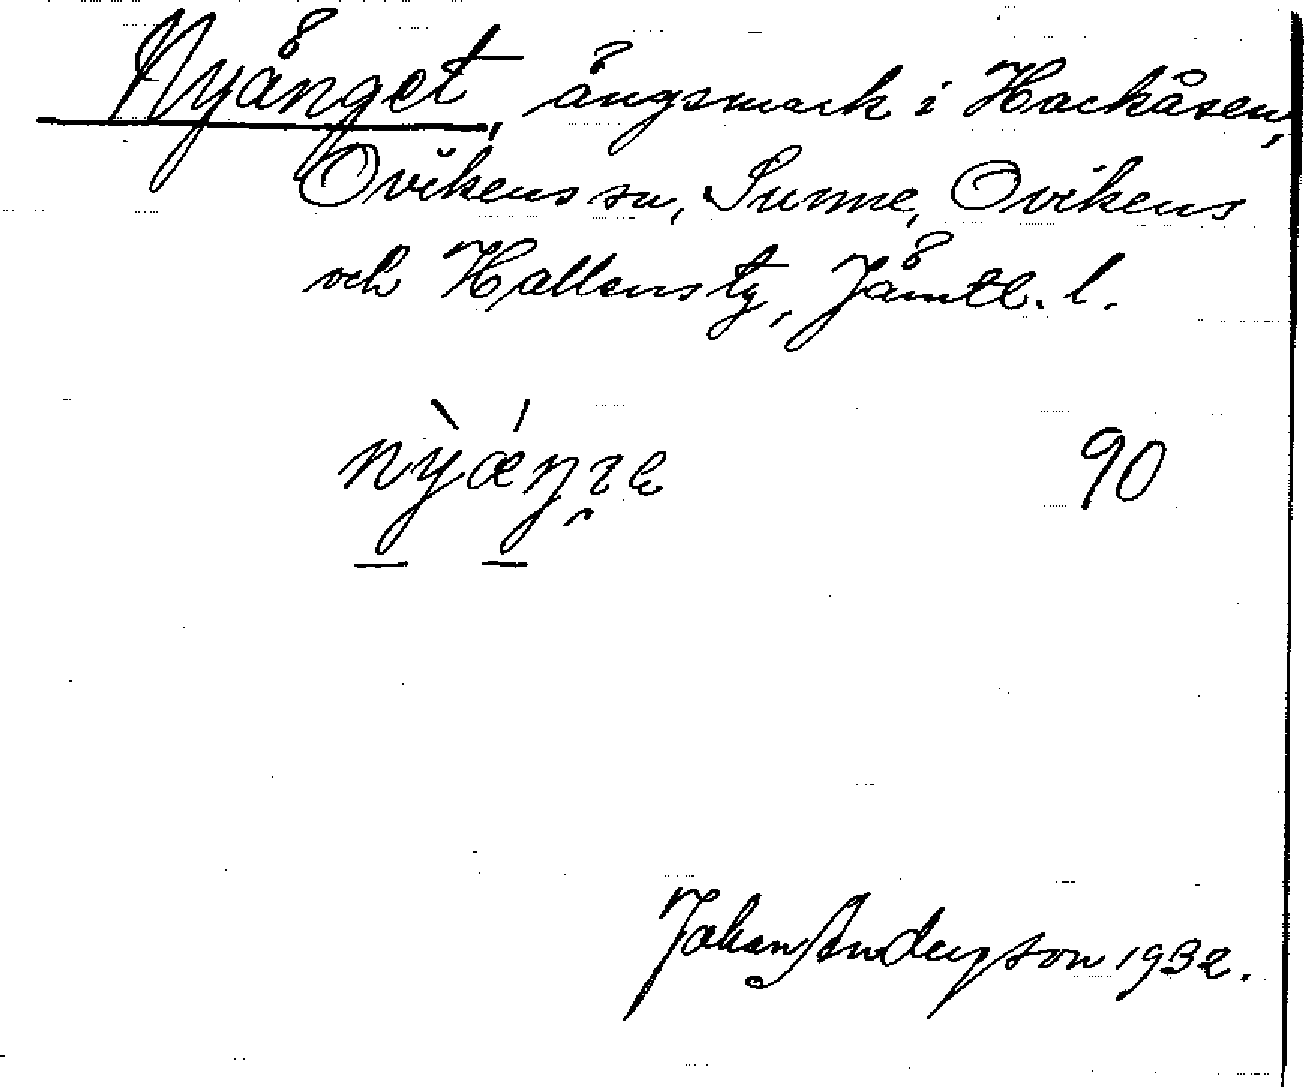 Nyänget, ängsmark i Hackåsen,
Ovikens sn, Sunne, Ovikens
och Hallens tg, Jämtl. l.
90
Johan Anderson 1932.